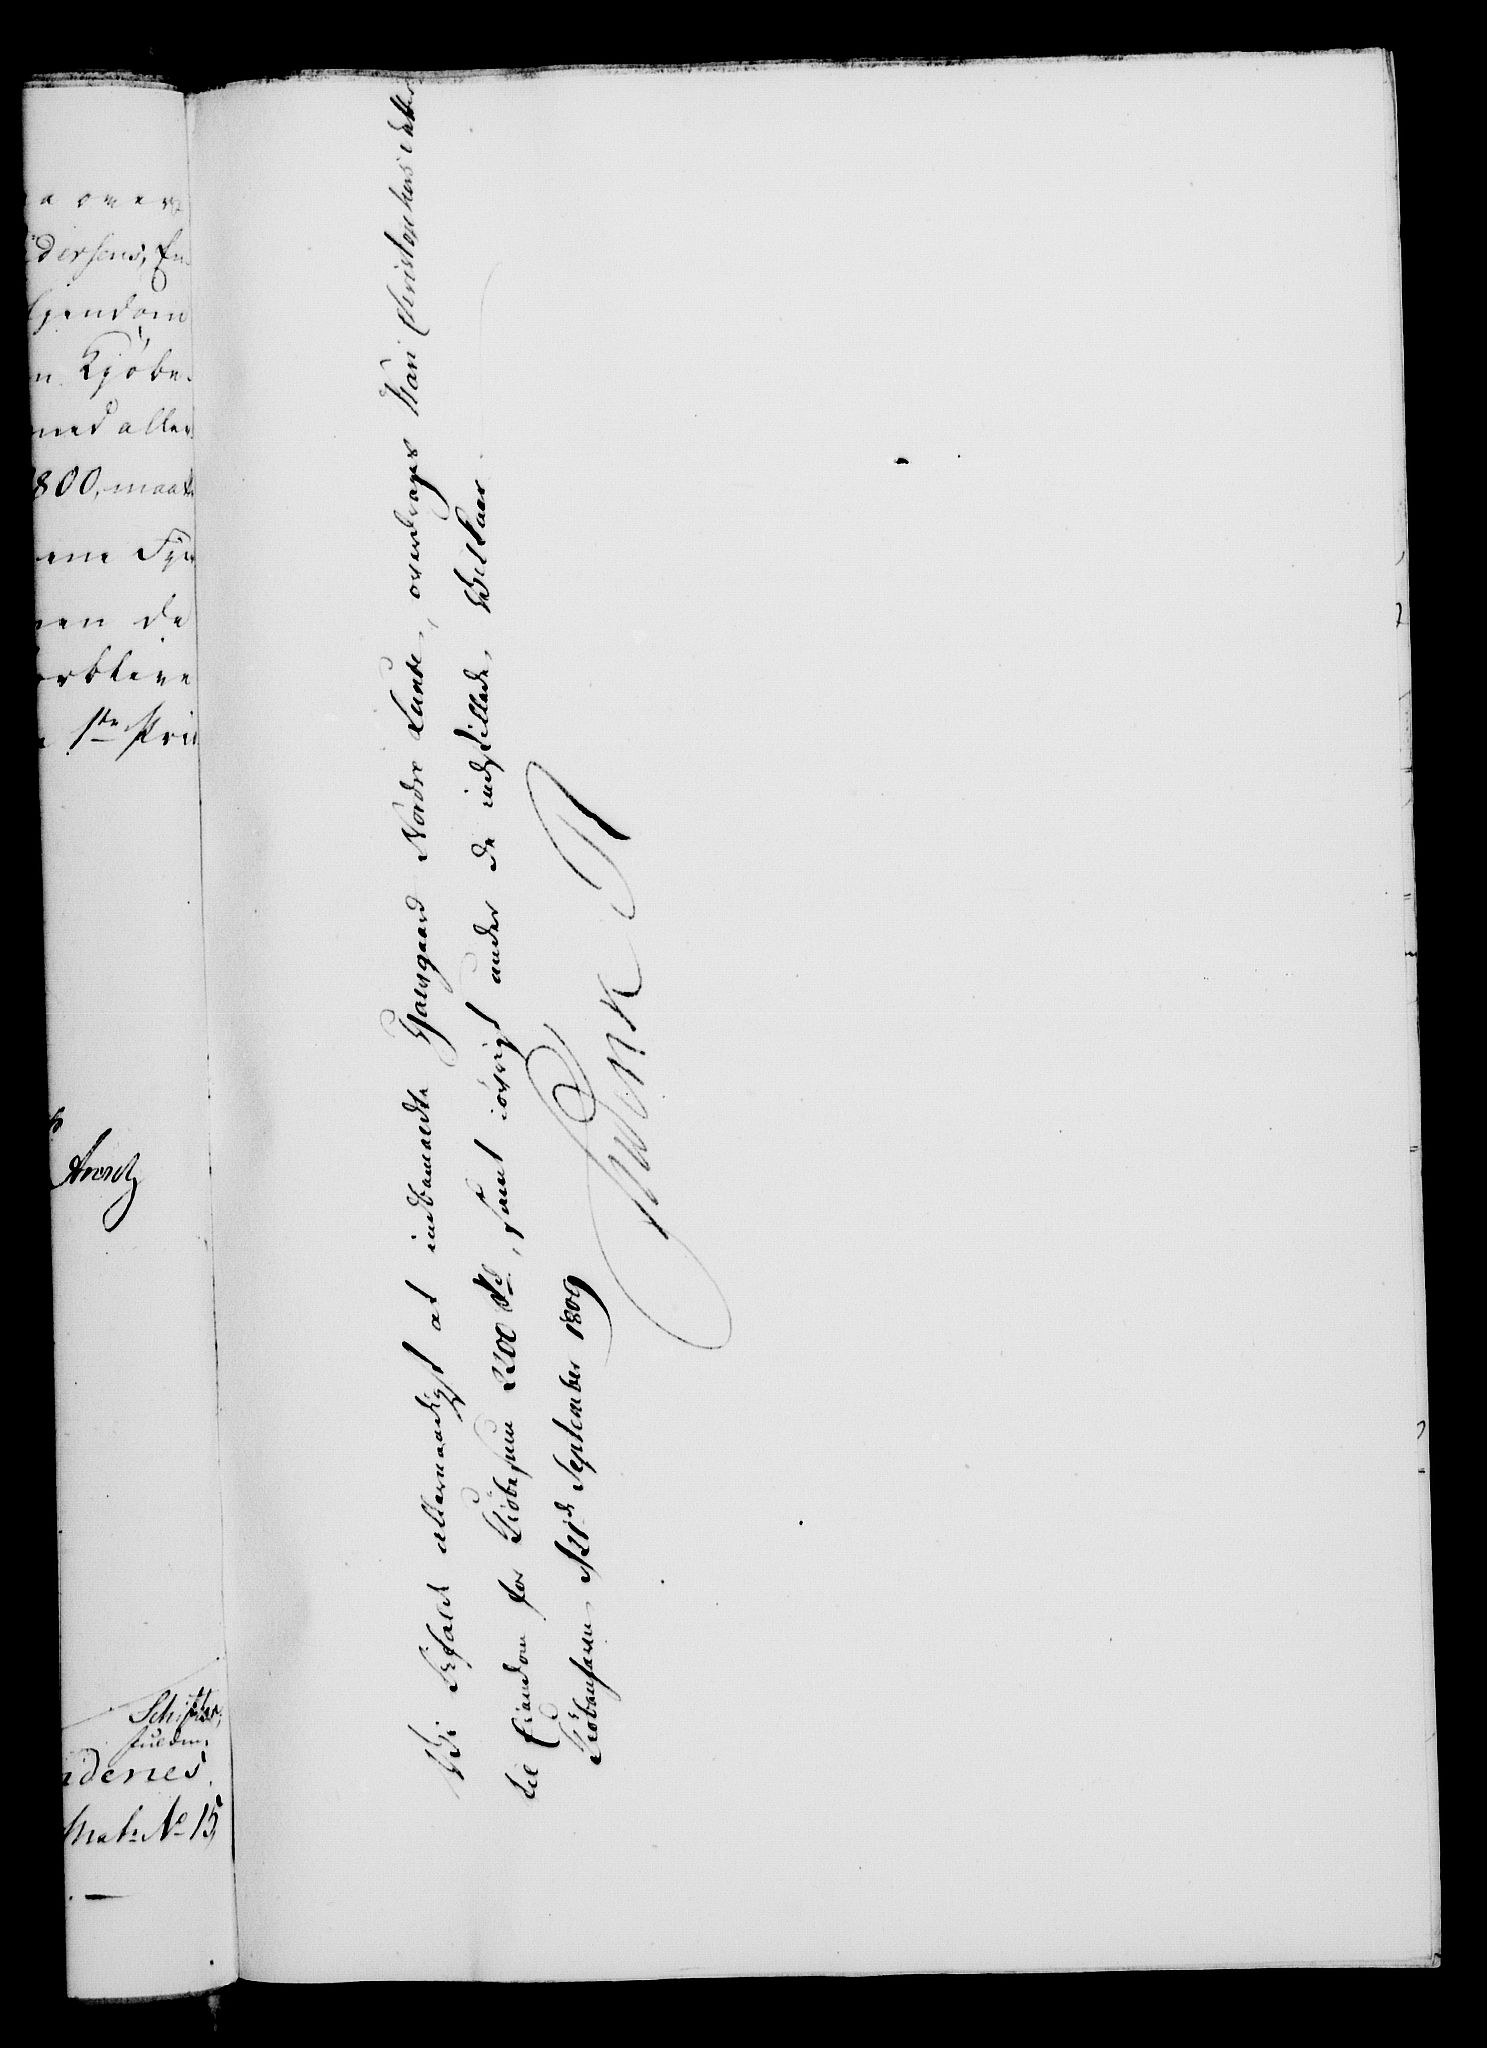 a over
dersens, En
Ejendom
n Kjøbe
med aller
1800, maatte
ene Tyve
men de
forblive
1ste Pri
Arentz
Schifter,
fuldm.
idenes
Matr. No 15,
Vi befale allernaadigst at indbemeldte Gaard Nordre Lunde, overdrages Kari Christophersdatter
til Eiendom for Kiøbesum 2200 Rd, samt iøvrigt under de indstillede Vilkaar
Kiøbenhavn d. 21de September 1809
Frideric R